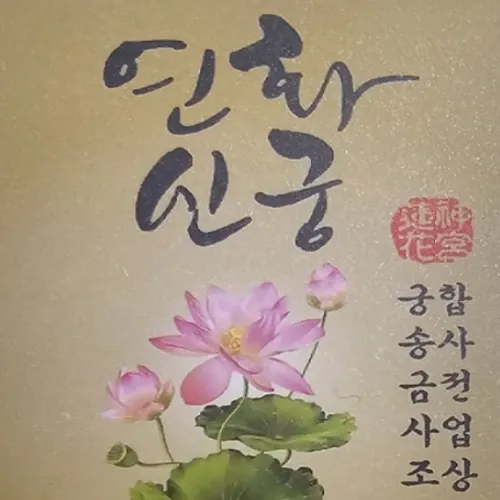 연화
신궁
蓮花
神宮
궁합
송사
금전
사업
조상